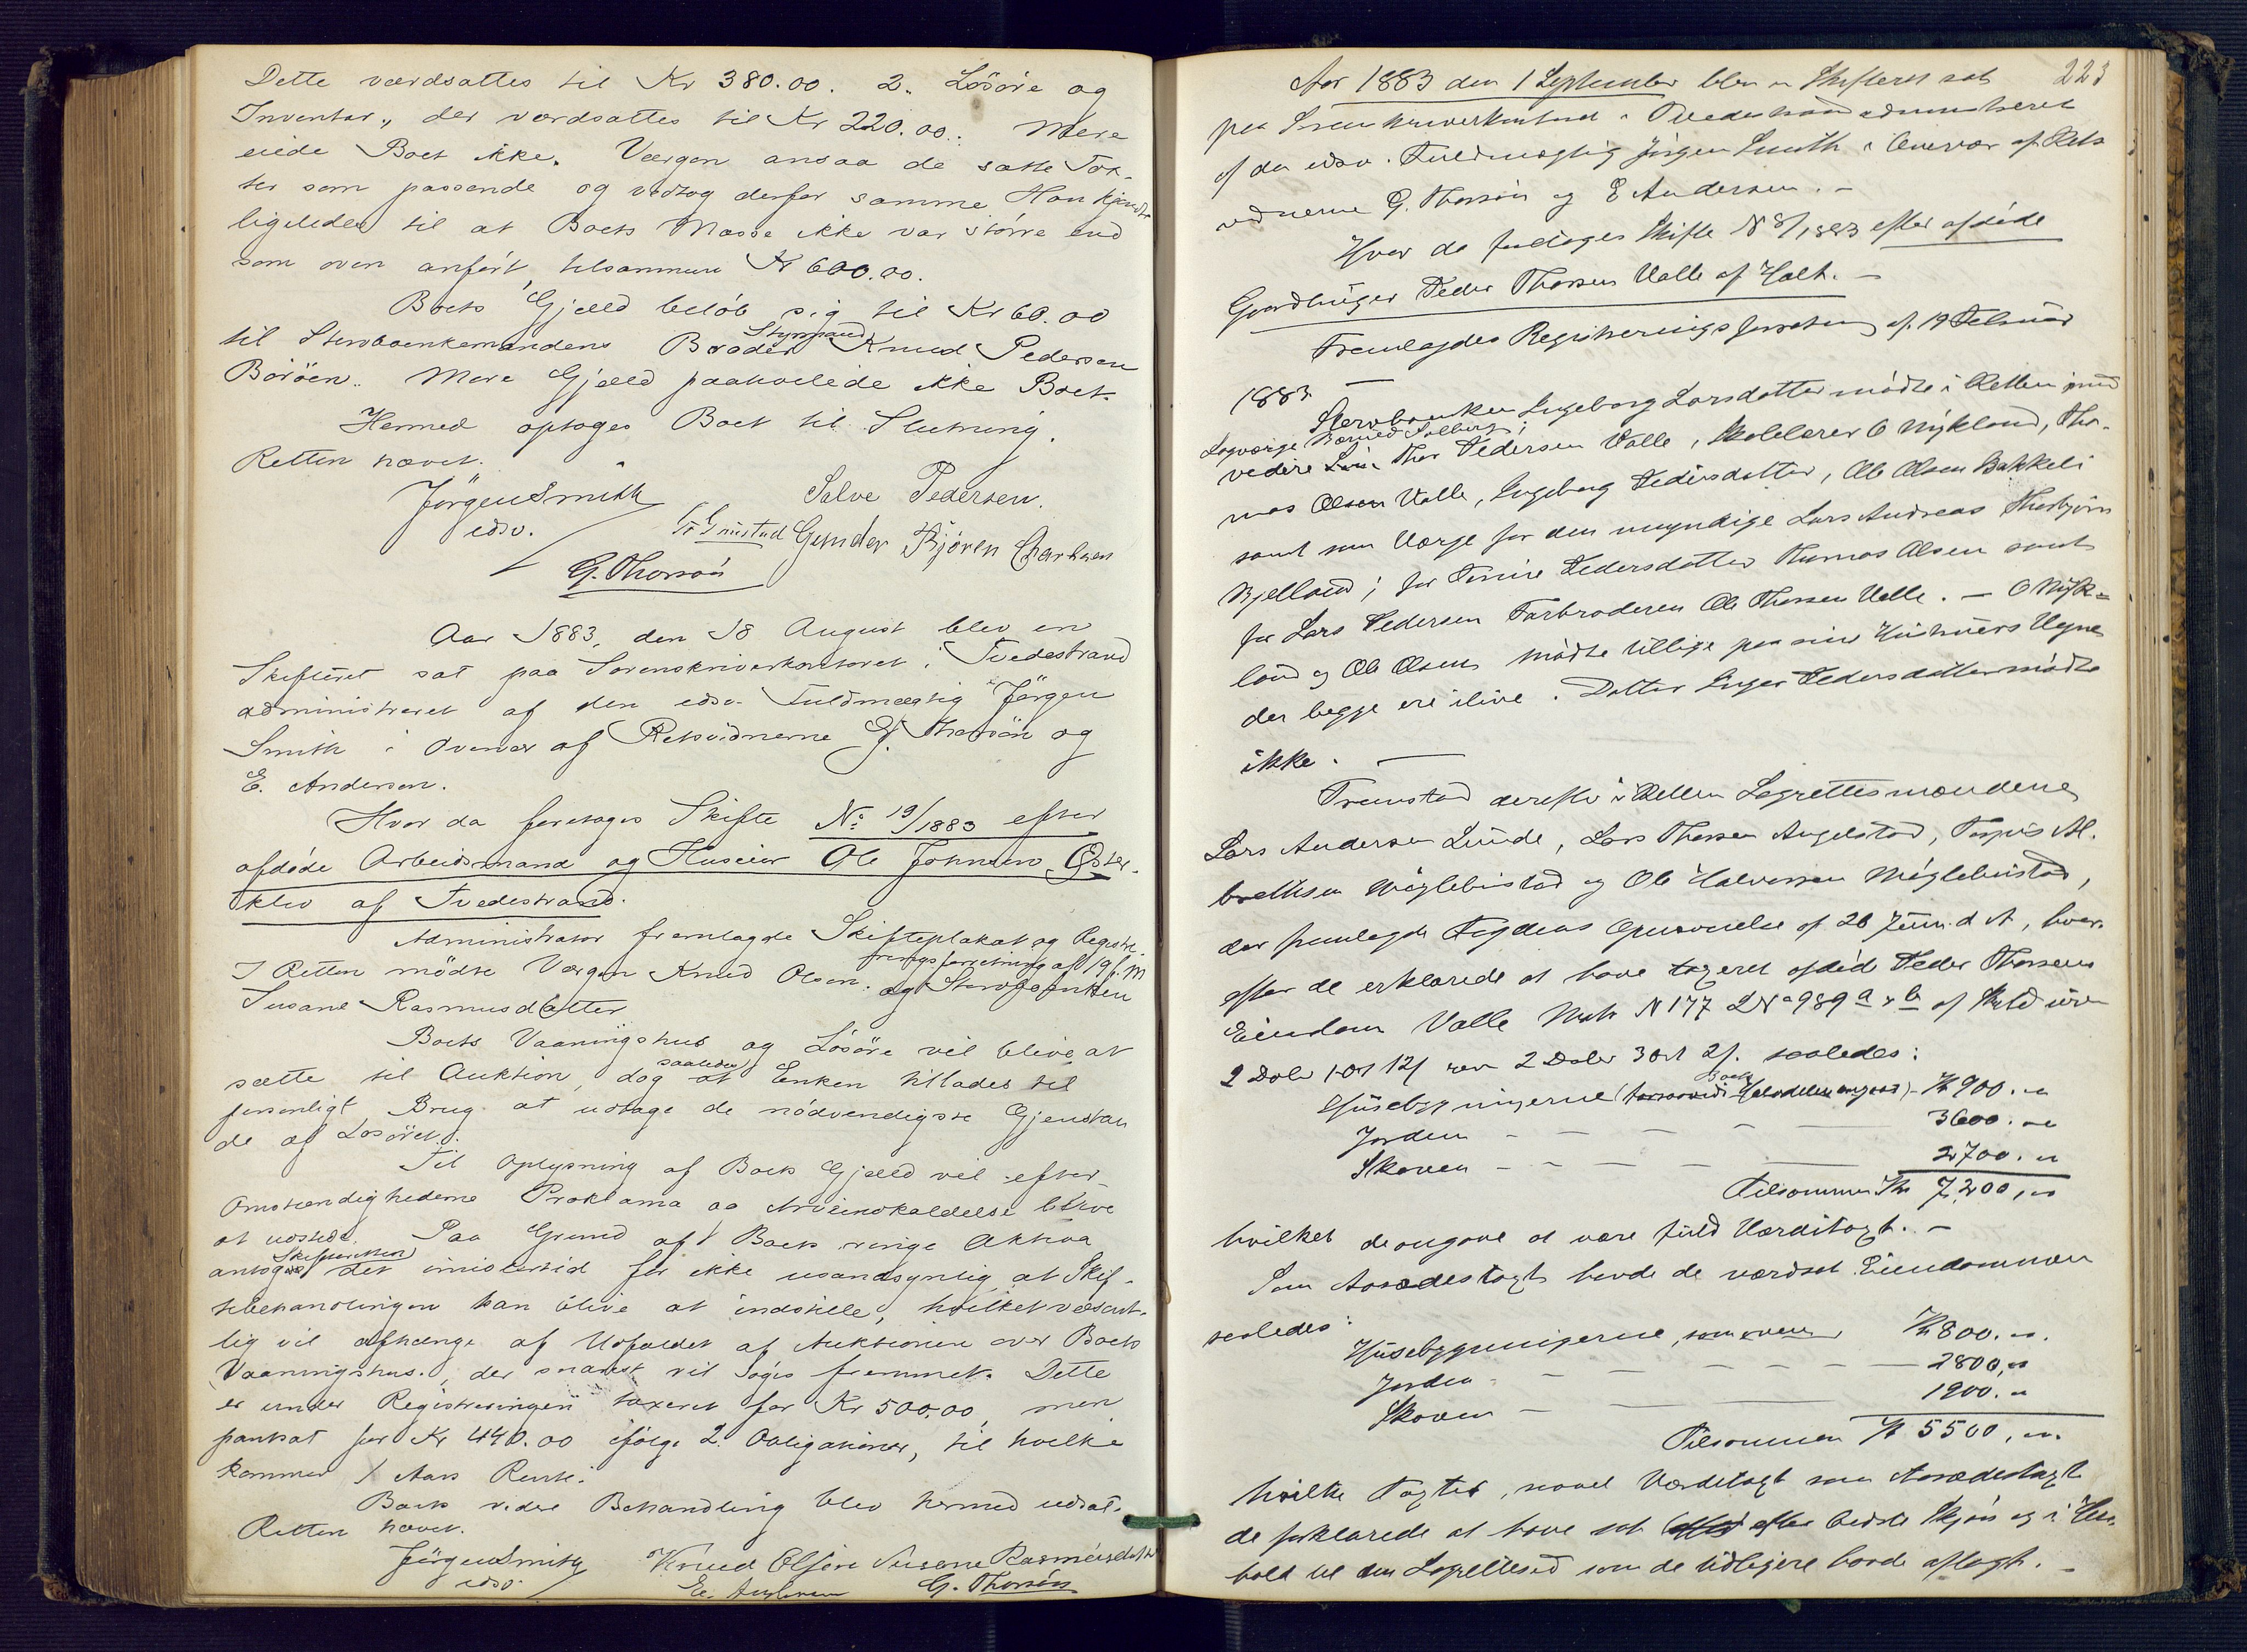 Dette værdsattes til Kr 380.00. 2. Løsøre og
Inventar, der værdsattes til Kr 220.00. Mere
eiede Boet ikke. Værgen ansaa de satte Tax-
ter som passende og vedtog derfor samme Han kjendte
ligeledes til at Boets Masse ikke var større end
som oven anført, tilsammen Kr 600.00.
Boets Gjæld beløb sig til Kr 60.00
til Stervboenkemandens Broder Styrmand Knud Pedersen
Borøen. Mere Gjæld paahvilede ikke Boet.
Hermed optoges Boet til Slutning.
Retten hævet.
Jørgen Smith Salve Pedersen.
edsv. Gunder Bjøren Charlsen
G. Thorsøn
Aar 1883, den 18 August blev en
Skifteret sat paa Sorenskriverkontoret i Tvedestrand
administreret af den edsv. Fuldmægtig Jørgen
Smith i Overvær af Retsvidnerne G. Thorsøn og
E. Andersen.
Hvor da foretoges Skifte No 19/1883 efter
afdøde Arbeidsmand og Huseier Ole Johnsen Øster-
klev af Tvedestrand.
Administrator fremlagde Skifteplakat og Registre-
ringsforretning af 19 f. M
I Retten mødte Værgen Knud Olsen og Stervboenken
Susane Rasmusdatter
Boets Vaaningshus og Løsøre vil blive at
sætte til Auktion, dog saaledes at Enken tillades til
personligt Brug at udtage de nødvendigste Gjenstan
de af Løsøret.
Til Oplysning af Boets Gjæld vil efter
Omstændighederne Proklama og Arveindkaldelse blive
at udstede. Paa Grund af Boets ringe Aktiva
antoges Skifteretten det imidlertid for ikke usandsynlig at Skif-
tebehandlingen kan blive at indstille, hvilket væsent-
lig vil afhænge af Udfaldet af Auktionen over Boets
Vaaningshus, der snarest vil søges fremmet. Dette
er under Registreringen taxeret for Kr 500.00, men
pantsat for Kr 440.00 ifølge 2 Obligationer, til hvilke
kommer 1 Aars Rente.
Boets videre Behandling blev hermed udsat.
Retten hævet.
Jørgen Smith Knud Olsen Susane Rasmusdatter
edsv. E. Andersen G. Thorsøn
223
Aar 1883 den 1 September blev en Skifteret sat
paa Sorenskriverkontoret i Tvedestrand administreret
af den edsv. Fuldmægtig Jørgen Smith i Overvær af Rets
vidnerne G. Thorsøn og E Andersen. -
Hvor da foretoges Skifte N 8/1883 efter afdøde
Gaardbruger Peder Thorsen Valle af Holt. -
Fremlagdes Registreringsforretning af 19 Februar
1883 -
Stervboenken Ingeborg Larsdatter mødte i Retten med
Lagværge Solberg;
videre Thor Pedersen Valle, Skolelærer O Mykland, Tho-
mas Olsen Valle, Ingeborg Pedersdatter, Ole Olsen Bakkeli
samt som Værge for den umyndige Lars Andreas Thorbjørn
Kjelland; for Pedersdatter Thomas Olsen samt
for Lars Pedersen Farbroderen Ole Thorsen Valle. - O Myk-
land og Ole Olsen mødte tillige paa sine Hustruers Vegne
der begge ere ilive. Datter Inger Pedersdatter mødte
ikke.
Fremstod derefter i Retten Lagrettesmændene
Lars Andersen Lunde, Lars Thorsen Angelstad, Al-
brethsen Møglebustad og Ole Halvorsen Møglebustad,
der fremlagde Fogdens Opnævnelse af 26 Juni d A, hvor-
efter de erklærede at have taxeret afdøde Peder Thorsens
Eiendom Valle Matr N 177 L No 989 a & b af Skyld
2 Daler 1 Ort 12 2 Daler 3 Ort 2 s. saaledes:
Husebygningerne Kr 900.
Jorden - - - - 3600.
Skoven - - - - 2700.
Tilsammen Kr 7,200,
hvilket de angave at være fuld Værditaxt. -
Som Aasædestaxt havde de værdsat Eiendommen
saaledes:
Husebygningerne, som oven Kr 800.
Jorden - - - - 2800.
Skoven - - 1900.
Tilsammen Kr 5500,
hvilke Taxter, saavel Værditaxt som Aasædestaxt
de forklarede at have sat efter bedste Skjøn og i Hen-
hold til den Lagrettesed som de tidligere havde aflagt. -